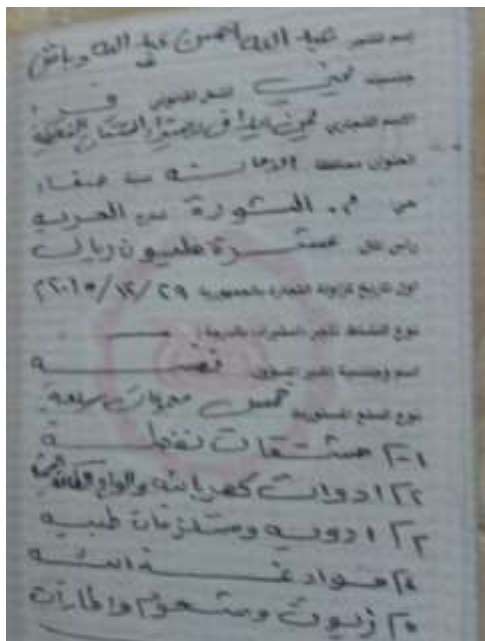 اسم التاجر عبد الله حسن عبد الله دباش
جنسيته يمني الشكل القانوني فرد
الاسم التجاري لاستيراد المشتقات النفطية
العنوان محافظة الامانة مد صنعاء
حي م. الثورة الحرية
راس المال عشرة مليون ريال
اول تاريخ لمزاولة التجارة بالجمهورية ٢٠١٥/١٢/٢٩م
نوع النشاط تاجر استيرادات بالدرجة:
اسم وجنسية المدير المسؤول نفسه
نوع السلع المستوردة خمس مجموعات سلعية
١-٢ مشتقات نفطية
٢٢ ادوات كهربائية والواح
٢٣ ادوية ومستلزمات طبية
٢٤ مواد غذائية
٢٥ زيوت وشحوم واطارات